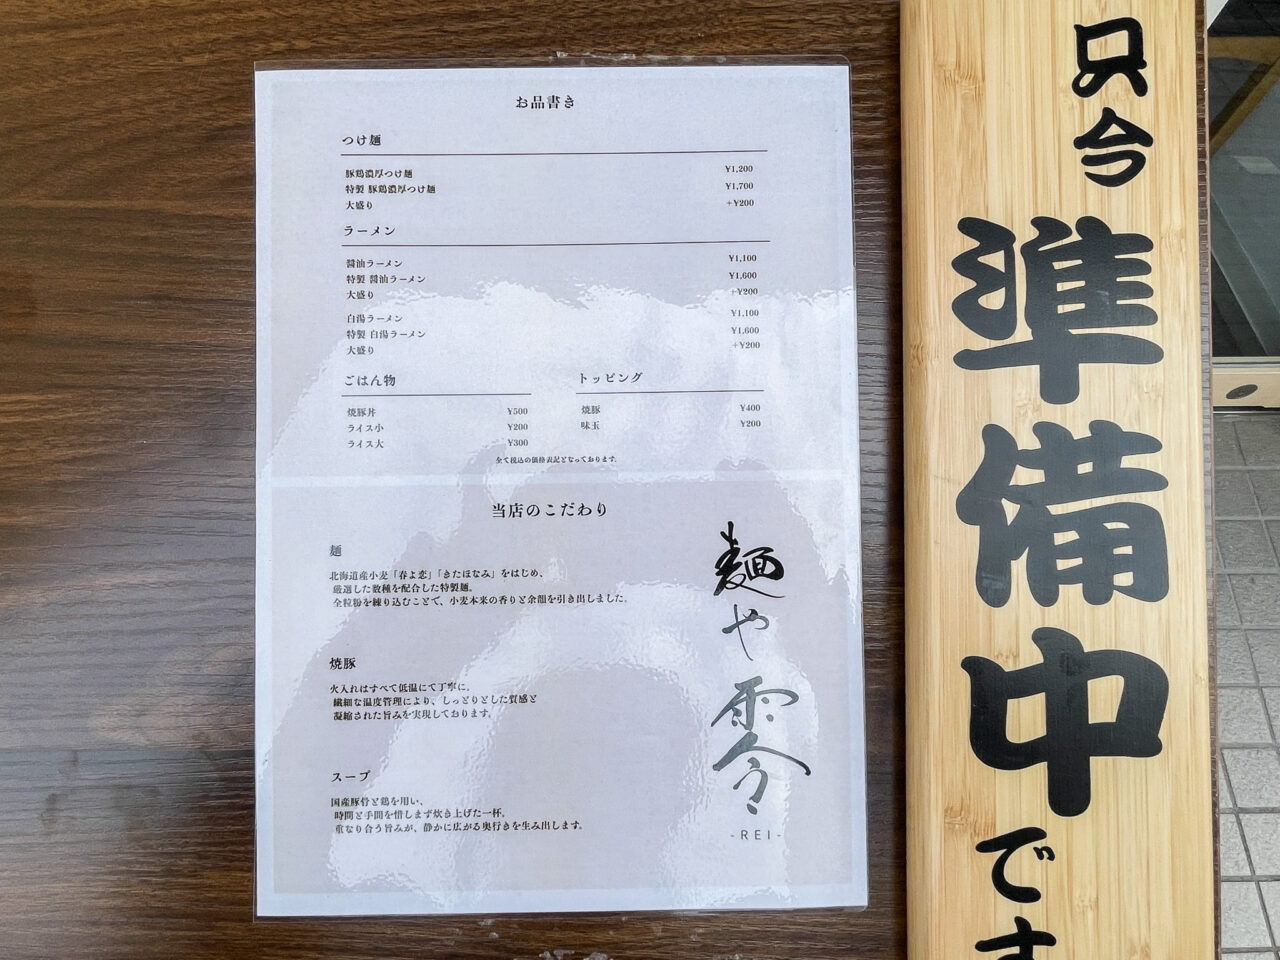 お品書き
つけ麺
豚鶏濃厚つけ麺 ¥1,200
特製 豚鶏濃厚つけ麺 ¥1,700
大盛り +¥200
ラーメン
醤油ラーメン ¥1,100
特製 醤油ラーメン ¥1,600
大盛り +¥200
白湯ラーメン ¥1,100
特製 白湯ラーメン ¥1,600
大盛り +¥200
ごはん物
焼豚丼 ¥500
ライス小 ¥200
ライス大 ¥300
トッピング
焼豚 ¥400
味玉 ¥200
全て税込の価格表記となっております。
当店のこだわり
麺
北海道産小麦「春よ恋」「きたほなみ」をはじめ、
厳選した数種を配合した特製麺。
全粒粉を練り込むことで、小麦本来の香りと余韻を引き出しました。
焼豚
火入れはすべて低温にて丁寧に。
繊細な温度管理により、しっとりとした質感と
凝縮された旨みを実現しております。
スープ
国産豚骨と鶏を用い、
時間と手間を惜しまず炊き上げた一杯。
重なり合う旨みが、静かに広がる奥行きを生み出します。
麺や零
-REI-
只今
準備中
です